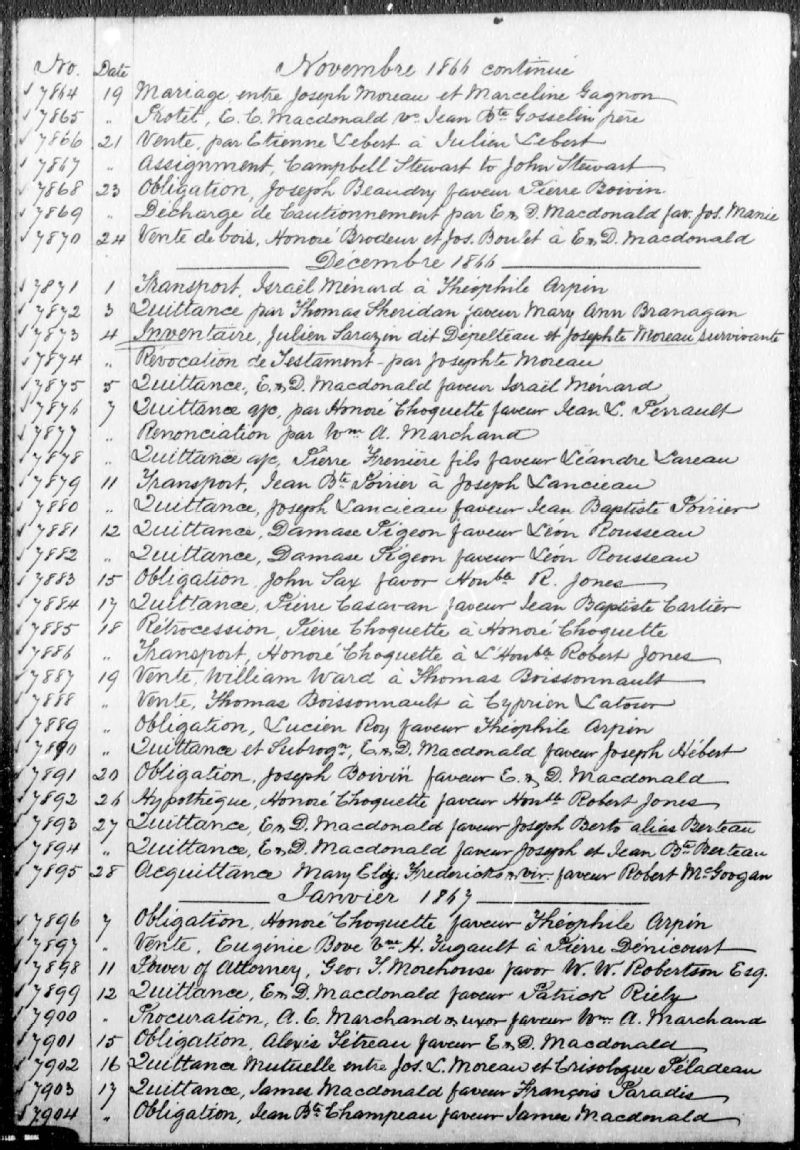 No. Date Novembre 1866 continué
√ 7864 19 Mariage, entre Joseph Moreau et Marceline Gagnon
√ 7865 " Protêt, E. C. Macdonald vs Jean Bte Gosselin père
√ 7866 21 Vente, par Etienne Lebert à Julien Lebert
√ 7867 " Assignment, Campbell Stewart to John Stewart
√ 7868 23 Obligation, Joseph Beaudry faveur Pierre Boivin
√ 7869 " Décharge de Cautionnement par E & D. Macdonald fav. Jos. Manie
√ 7870 24 Vente de bois, Honoré Brodeur et Jos. Boulet à E & D. Macdonald
Décembre 1866
√ 7871 1 Transport, Israël Ménard à Théophile Arpin
√ 7872 3 Quittance par Thomas Sheridan faveur Mary Ann Branagan
√ 7873 4 Inventaire, Julien Sarazin dit Dépelteau et Josephte Moreau survivante
√ 7874 " Révocation de Testament par Josephte Moreau
√ 7875 5 Quittance, E. & D. Macdonald faveur Israël Ménard
√ 7876 7 Quittance a/c, par Honoré Choquette faveur Jean L. Perrault
√ 7877 " Renonciation par Wm A. Marchand
√ 7878 " Quittance a/c, Pierre Frenière fils faveur Léandre Lareau
√ 7879 11 Transport, Jean Bte Poirier à Joseph Lancieau
√ 7880 " Quittance, Joseph Lancieau faveur Jean Baptiste Poirier
√ 7881 12 Quittance, Damase Pigeon faveur Léon Rousseau
√ 7882 " Quittance, Damase Pigeon faveur Léon Rousseau
√ 7883 15 Obligation, John Sax favor Honble R. Jones
√ 7884 17 Quittance, Pierre Casavan faveur Jean Baptiste Cartier
√ 7885 18 Rétrocession, Pierre Choquette à Honoré Choquette
√ 7886 " Transport, Honoré Choquette à L'Honble Robert Jones
√ 7887 19 Vente, William Ward à Thomas Boissonnault
√ 7888 " Vente, Thomas Boissonnault à Cyprien Latour
√ 7889 " Obligation, Lucien Roy faveur Théophile Arpin
√ 7890 " Quittance et Subrogn, E & D. Macdonald faveur Joseph Hébert
√ 7891 20 Obligation, Joseph Boivin faveur E. & D. Macdonald
√ 7892 26 Hypothèque, Honoré Choquette faveur Honble Robert Jones
√ 7893 27 Quittance, E & D. Macdonald faveur Joseph Berto alias Berteau
√ 7894 " Quittance, E & D. Macdonald faveur Joseph et Jean Bte Berteau
√ 7895 28 Acquittance Mary Eliz. Fredericks & vir. faveur Robert McGoogan
Janvier 1867
√ 7896 7 Obligation, Honoré Choquette faveur Théophile Arpin
√ 7897 " Vente, Eugénie Bove Vve H. Fugault à Pierre Dénicourt
√ 7898 11 Power of Attorney, Geo. T. Morehouse favor W. W. Robertson Esq.
√ 7899 12 Quittance, E & D. Macdonald faveur Patrick Riely
√ 7900 " Procuration, A. E. Marchand & uxor faveur Wm A. Marchand
√ 7901 15 Obligation, Alexis Tétreau faveur E & D. Macdonald
√ 7902 16 Quittance Mutuelle entre Jos. L. Moreau et Crisologue Péladeau
√ 7903 17 Quittance, James Macdonald faveur François Paradis
√ 7904 " Obligation, Jean Bte Champeau faveur James Macdonald